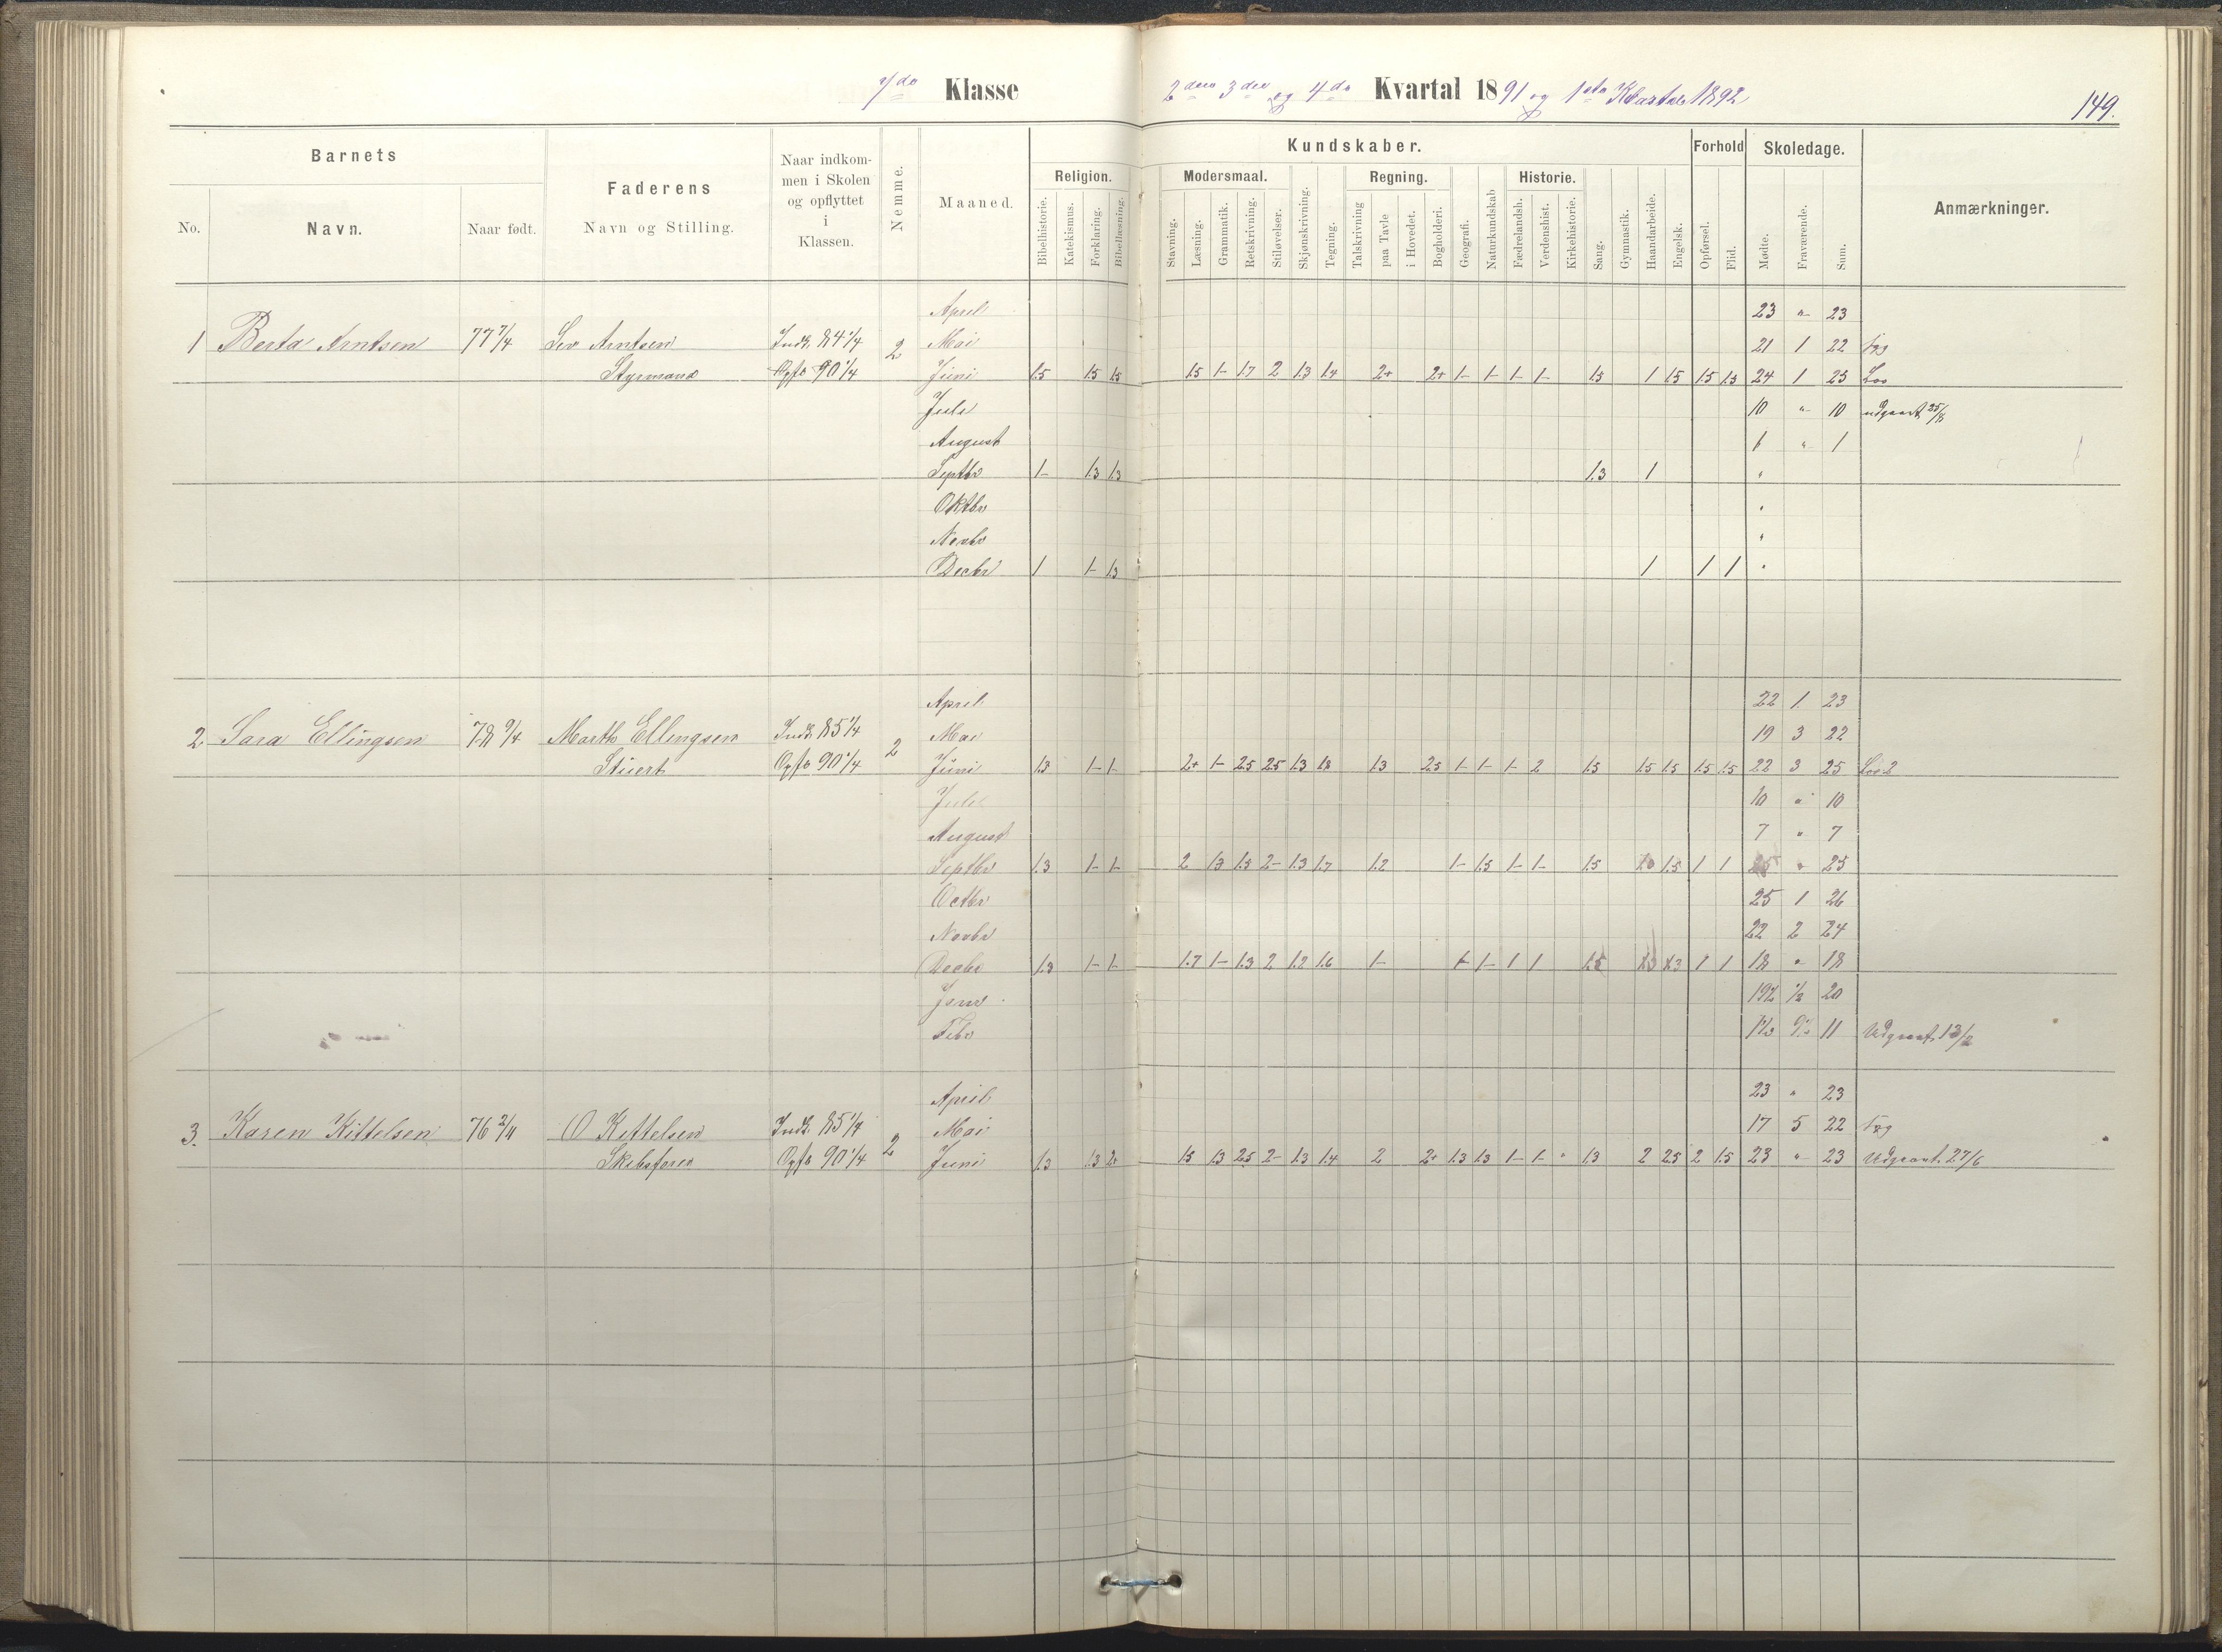 7de Klasse 2den 3die og 4de Kvartal 1891 og 1ste Kvartal 1892
149.
Barnets
Faderens
Naar indkommen i Skolen og opflyttet i Klassen.
Nemme.
Maaned.
Kundskaber.
Forhold
Skoledage.
Anmærkninger.
No. Navn. Naar født. Navn og Stilling.
Religion. Modersmaal. Regning. Historie.
Bibelhistorie. Katekismus. Forklaring. Bibellæsning. Stavning. Læsning. Grammatik. Retskrivning. Stiløvelser. Skjønskrivning. Tegning. Talskrivning paa Tavle i Hovedet. Bogholderi. Geografi. Naturkundskab Fædrelandsh. Verdenshist. Kirkehistorie. Sang. Gymnastik. Haandarbeide. Engelsk. Opførsel. Flid. Mødte. Fraværende. Sum.
April 23 " 23
1 Berta Arntsen 77 7/4 Arntsen Indk. 84 1/4 2 Mai 21 1 22
Styrmand Opfl 90 1/4 Juni 1.5 1.5 1.5 1.5 1- 1.7 2 1.3 1.4 2+ 2+ 1- 1- 1- 1- 1.5 1 1.5 1.5 1.5 24 1 25
Juli 10 " 10 udgaaet 25/8
August 1 " 1
Septbr 1- 1.3 1.3 1.3 1 "
Oktbr "
Novbr "
Decbr 1 1- 1.3 1 1 1 "
April 22 1 23
2 Sara Ellingsen 78 9/4 Ellingsen Indk 85 1/4 2 Mai 19 3 22
Stuert Opfl 90 1/4 Juni 1.3 1- 1- 2+ 1- 2.5 2.5 1.3 1.8 1.3 2.5 1- 1- 1- 2 1.5 1.5 1.5 1.5 1.5 22 3 25
Juli 10 " 10
August 7 " 7
Septbr 1.3 1- 1- 2 1.3 1.5 2- 1.3 1.7 1.2 1- 1.5 1- 1- 1.5 1.5 1 1 25 " 25
Octbr 25 1 26
Novbr 22 2 24
Decbr 1.3 1- 1- 1.7 1- 1.3 2 1.2 1.6 1- 1- 1- 1 1 1.5 1.3 1 1 18 " 18
Janr 19½ ½ 20
Febr 11 Udgaaet 13/2
April 23 " 23
3. Karen Kittelsen 76 2/11 O Kittelsen Indk. 85 1/4 2 Mai 17 5 22
Skibsfører Opfl 90 1/4 Juni 1.3 1.3 2+ 1.5 1.3 2.5 2- 1.3 1.4 2 2+ 1.3 1.3 1- 1- " 1.3 2 2.5 2 1.5 23 " 23 Udgaaet 27/6